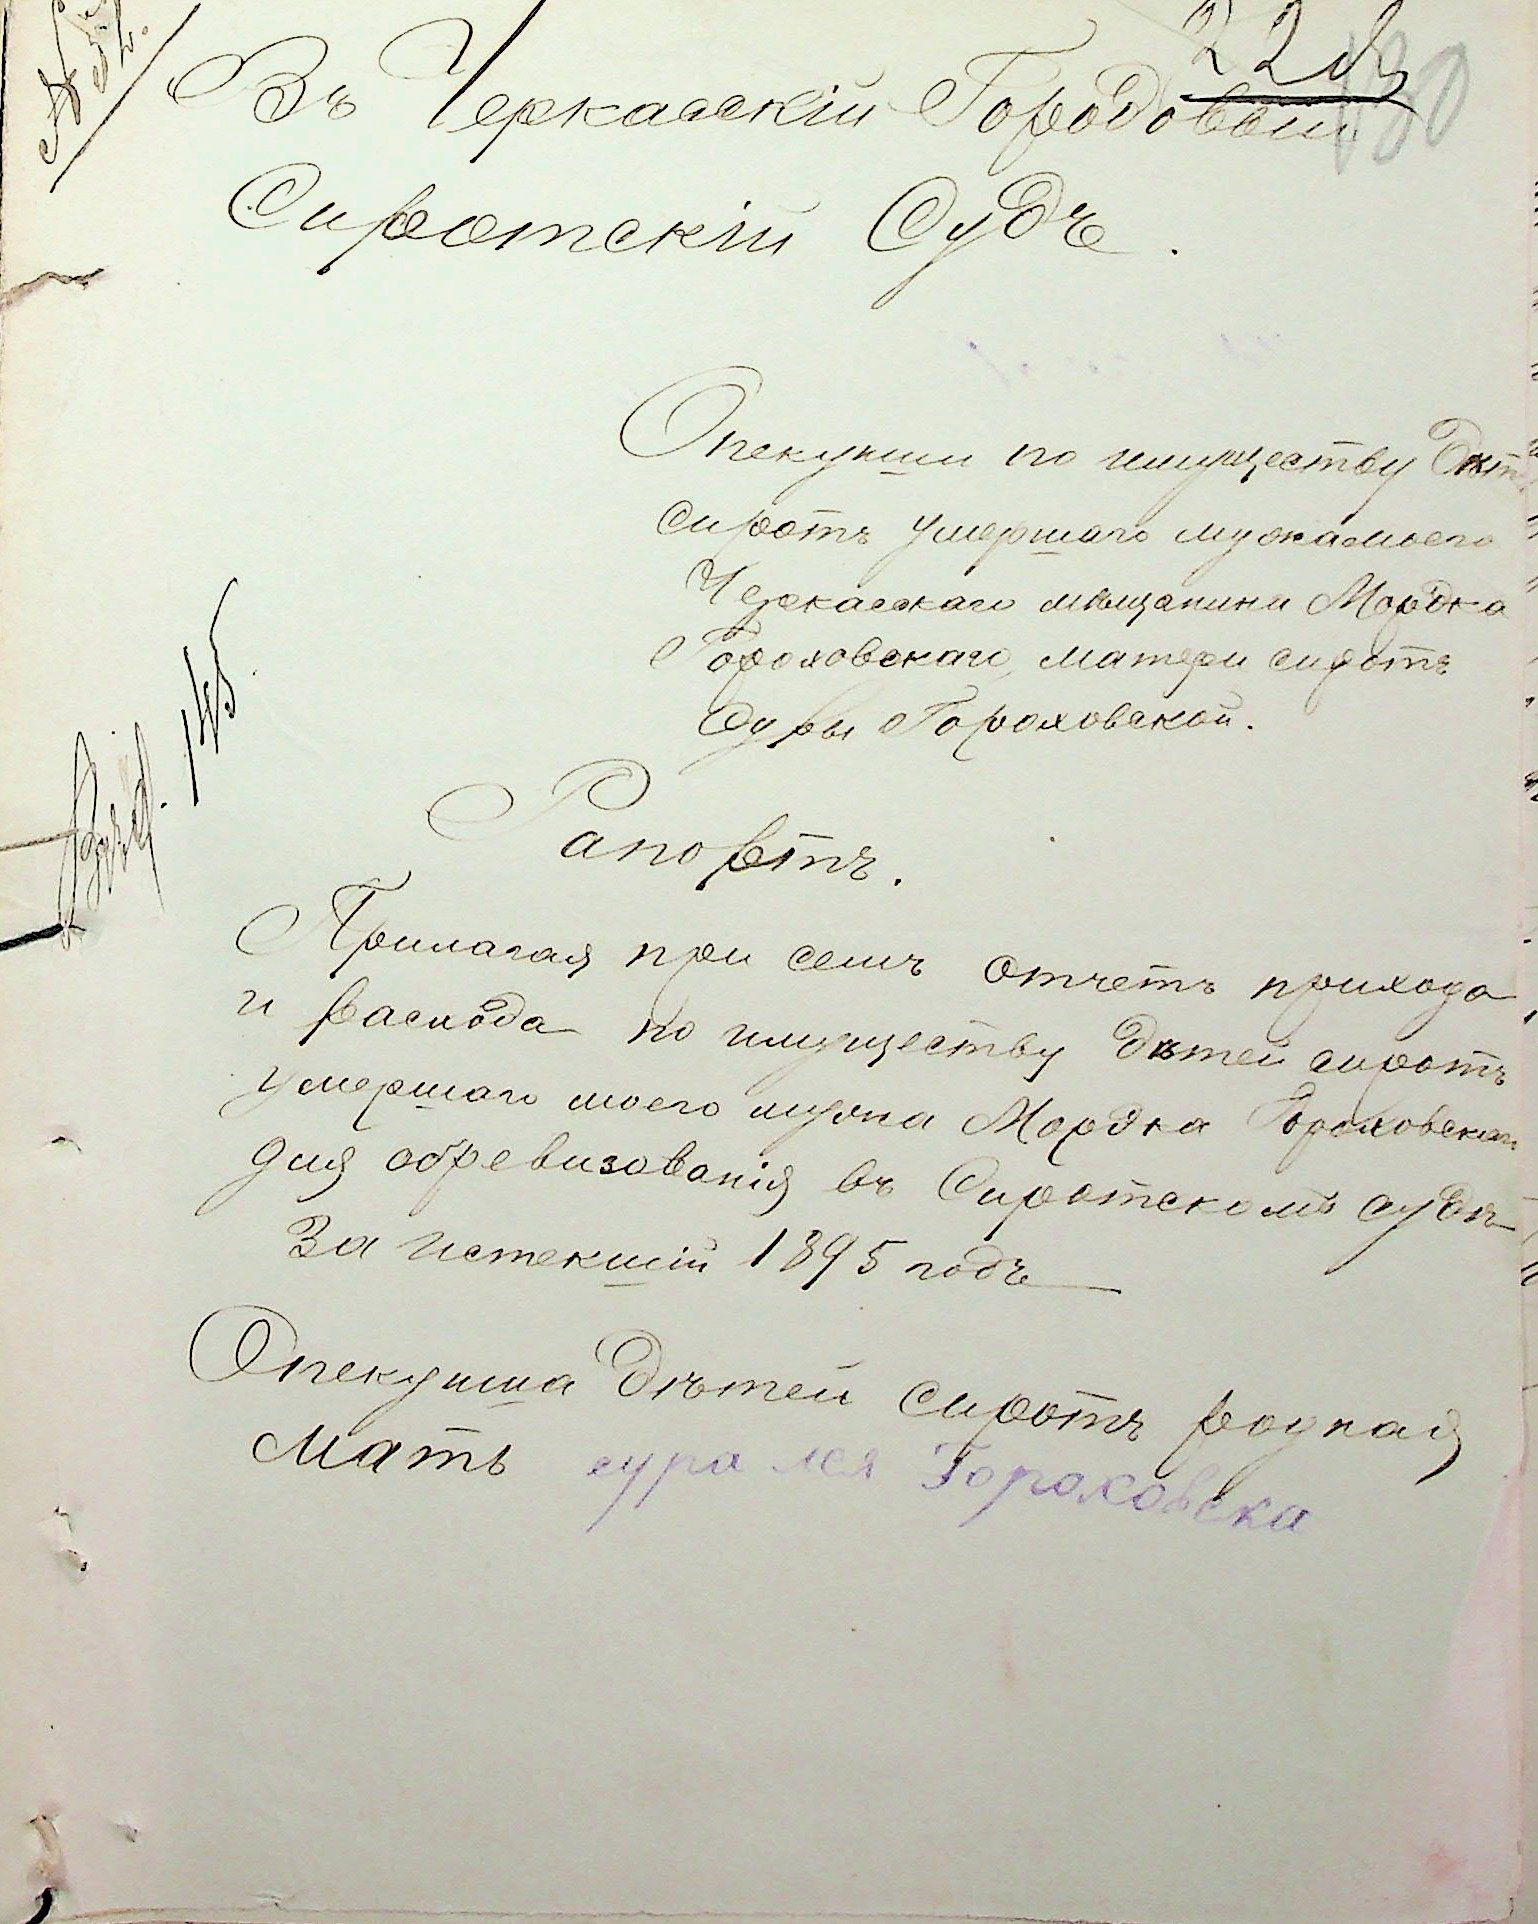 Въ Черкасскій Городовый
Сиротскій Судъ.
130
Опекунши по имуществу дѣт
сиротъ умершаго мужа моего
Черкасскаго мѣщанина Мордка
Гороховскаго, матери сиротъ
Суры Гороховской.
145
Рапортъ.
Прилагая при семъ отчетъ прихода
и расхода по имуществу дѣтей сиротъ
умершаго моего мужа Мордка Гороховскаго
для обревизованія въ Сиротскомъ судѣ
за истекшій 1895 годъ
Опекунша дѣтей сиротъ родная
мать сура лея Гороховска